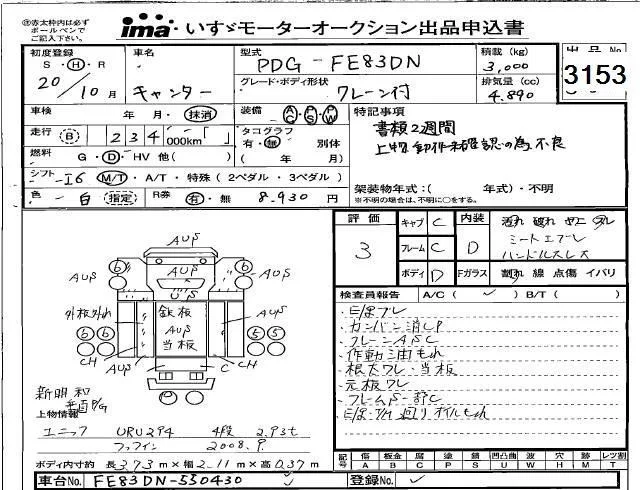 ㊟赤太枠内は必ず
ボールペンで
ご記入下さい。
ima いすゞモーターオークション出品申込書
初度登録
S・H・R
20/10月
車名
キャンター
型式
PDG-FE83DN
グレード・ボディ形状
クレーン付
積載(kg)
3,000
排気量(cc)
4.890
出品No.
3153
車検 年・月・抹消
装備 AC・PS・PW
走行 B 234 000km
タコグラフ
有・無 別体
( 年 月)
燃料 G・D・HV 他( )
シフト I6 M/T・A/T・特殊(2ペダル・3ペダル)
色 白 指定 R券 有・無 8.930円
特記事項
書類2週間
上物動作未確認の為不良
架装物年式:( 年式)・不明
※不明の場合は、不明に○をする。
評価
3
キャブ C
フレーム C
ボディ D
内装 D
汚れ 破れ ヤニ スレ
シートエブレ
ハンドルスレ大
Fガラス 割れ 線 点傷 イバリ
検査員報告 A/C( ✓ )B/T( )
カンバン消しP
クレーンASC
作動油もれ
根太ワレ・当板
元板ワレ
AUS
AUS
AUS
US
外板外れ
鉄板
AUS
当板
CH
AUS
C
CH
新明和
上物情報
ユニック URU294 4段 2.93t
2008.9.
ボディ内寸約 長3.73m×幅2.11m×高0.37m
車台No. FE83DN-550430
登録No.
記号 傷A 板金B 腐C 塗P 錆S 凹凸曲U 波W 穴H 跡M レツ割T